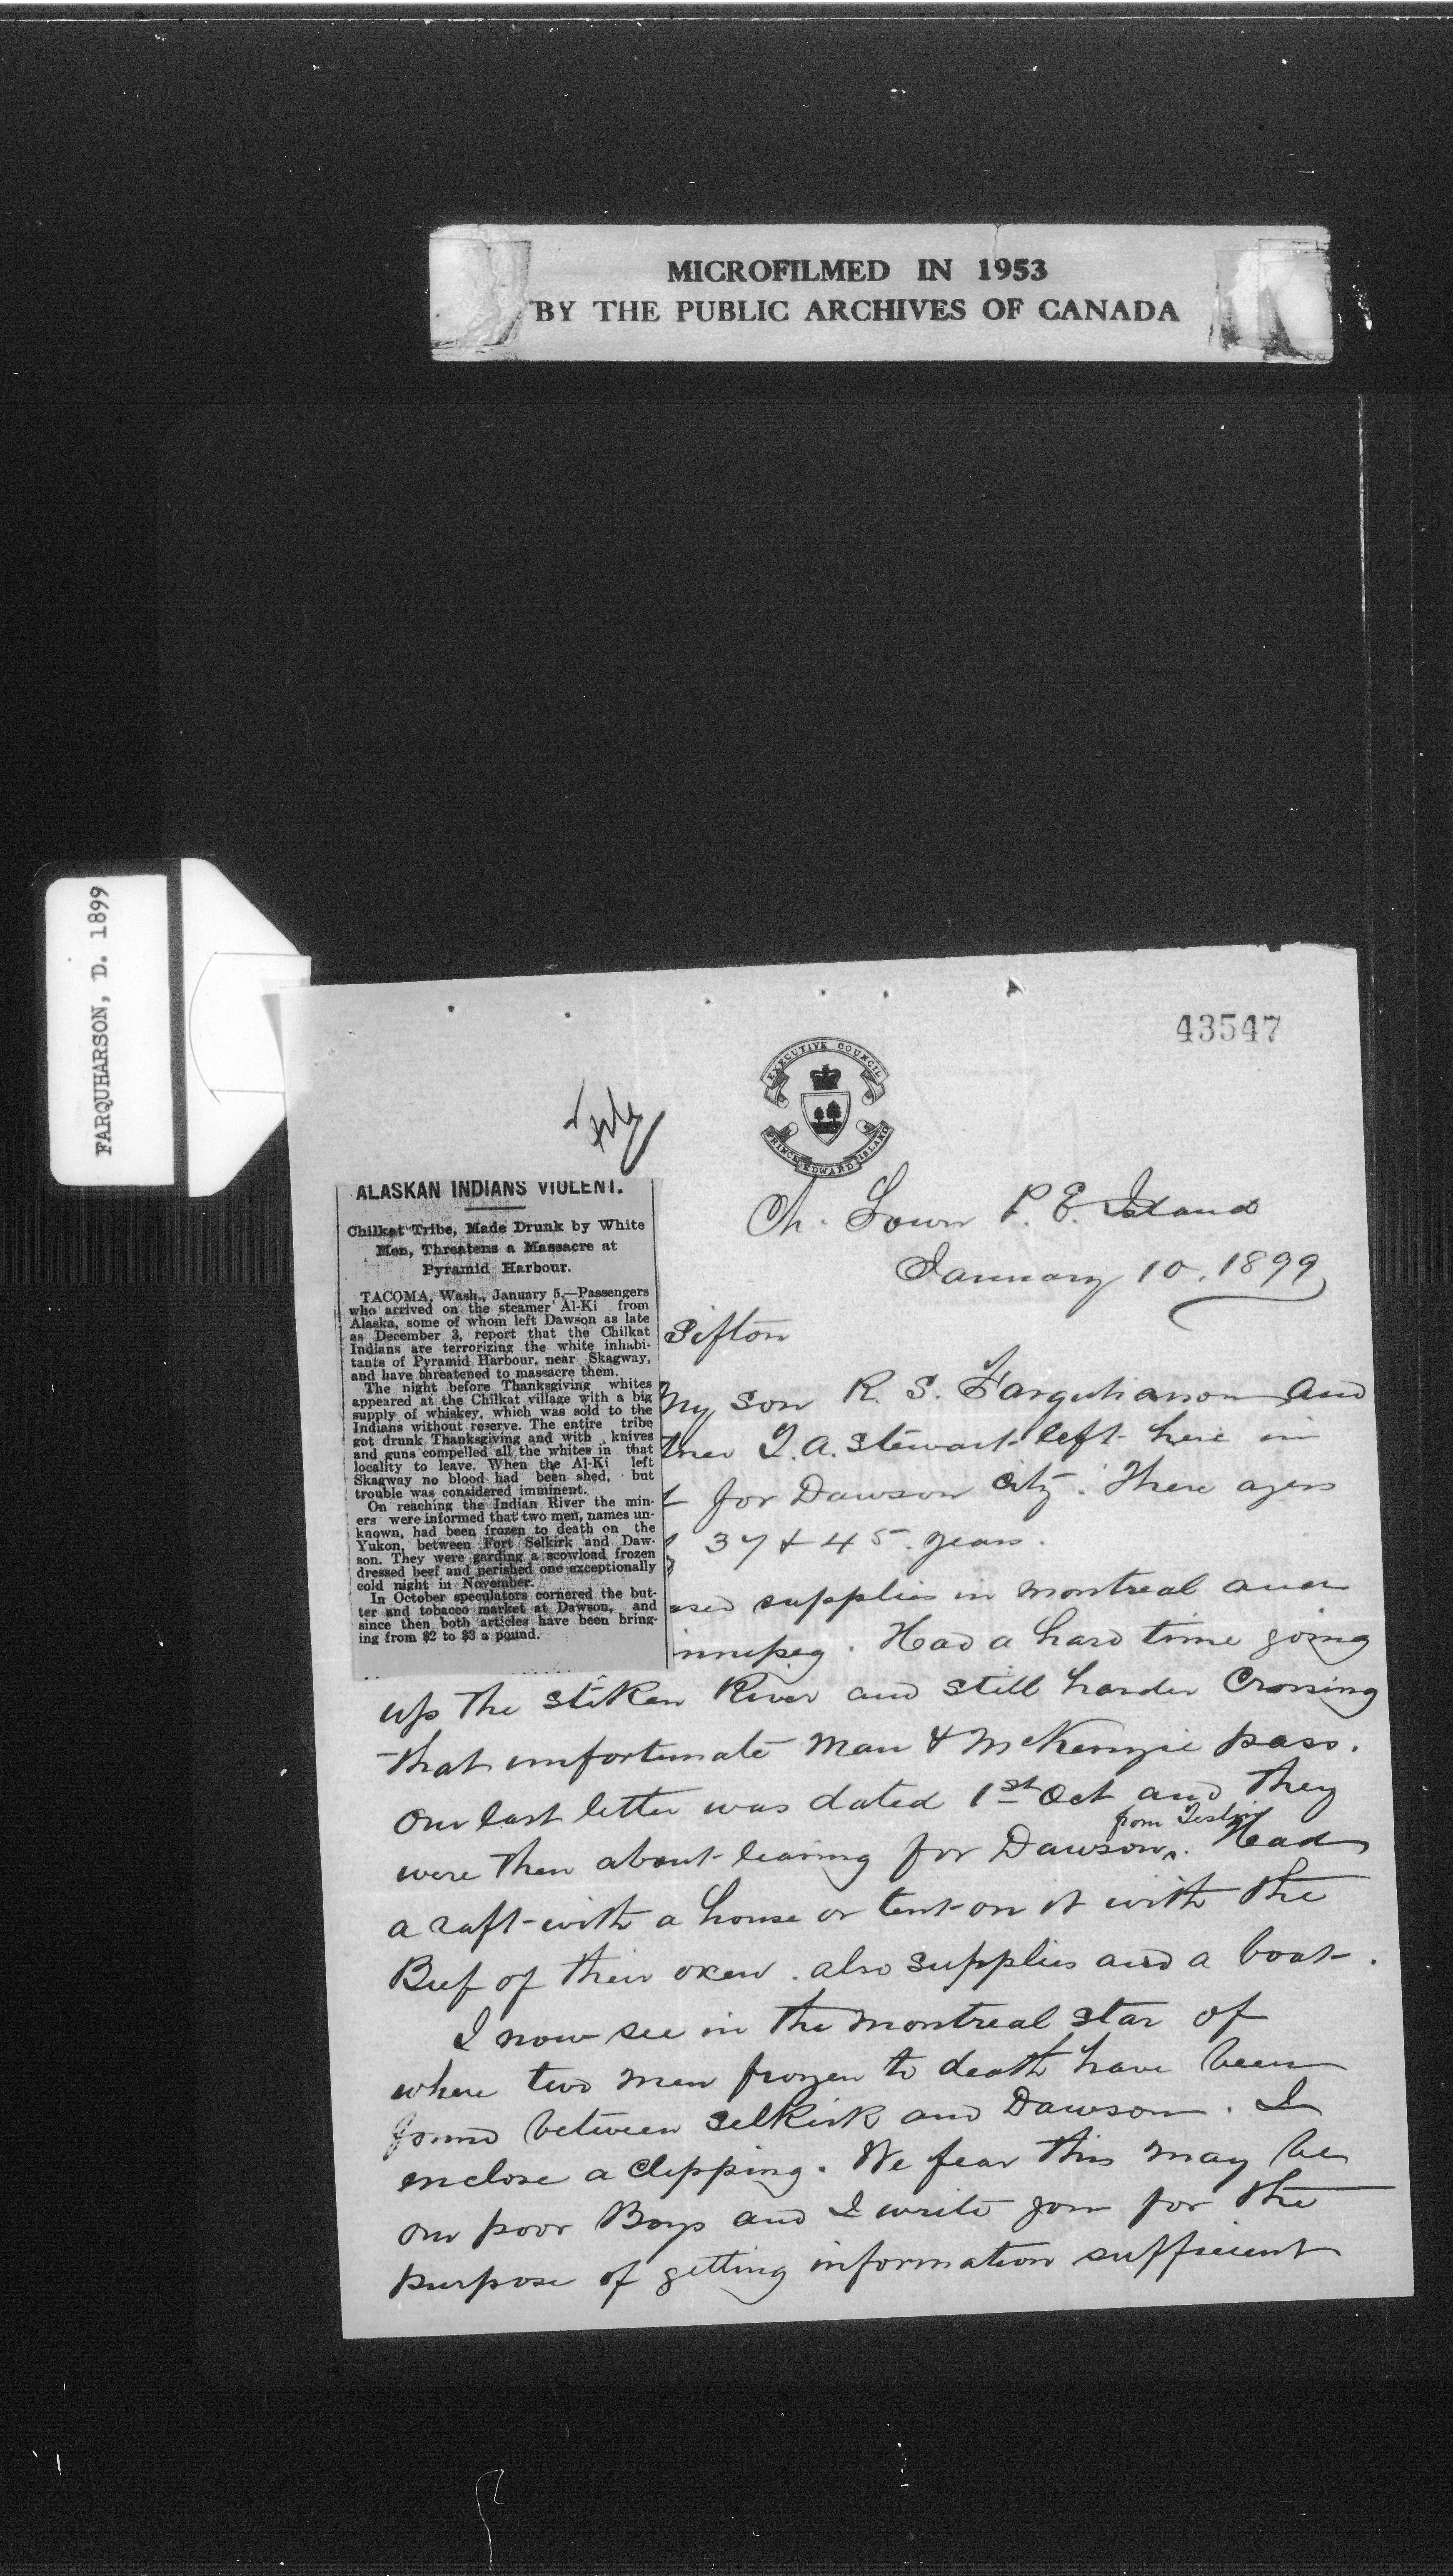 MICROFILMED IN 1953
BY THE PUBLIC ARCHIVES OF CANADA
FARQUHARSON, D. 1899
43547
EXECUTIVE COUNCIL
PRINCE EDWARD ISLAND
ALASKAN INDIANS VIOLENT.
Chilkat Tribe, Made Drunk by White
Men, Threatens a Massacre at
Pyramid Harbour.
TACOMA, Wash., January 5.—Passengers
who arrived on the steamer Al-Ki from
Alaska, some of whom left Dawson as late
as December 3, report that the Chilkat
Indians are terrorizing the white inhabi-
tants of Pyramid Harbour, near Skagway,
and have threatened to massacre them.
The night before Thanksgiving whites
appeared at the Chilkat village with a big
supply of whiskey, which was sold to the
Indians without reserve. The entire tribe
got drunk Thanksgiving and with knives
and guns compelled all the whites in that
locality to leave. When the Al-Ki left
Skagway no blood had been shed, but
trouble was considered imminent.
On reaching the Indian River the min-
ers were informed that two men, names un-
known, had been frozen to death on the
Yukon, between Fort Selkirk and Daw-
son. They were garding a scowload frozen
dressed beef and perished one exceptionally
cold night in November.
In October speculators cornered the but-
ter and tobacco market at Dawson, and
since then both articles have been bring-
ing from $2 to $3 a pound.
Ch. Town P. E. Island
January 10. 1899
Sifton
My son R. S. Farquharson and
tner T. A. Stewart left here in
for Dawson City. There ages
37 & 45 years.
ased supplies in Montreal and
innipeg. Had a hard time going
up the Stiken River and still harder Crossing
that unfortunate Man & McKenzie pass.
Our last letter was dated 1st Oct and they
were then about leaving for Dawson from Teslin. Had
a raft with a house or tent on it with the
Beef of their oxen. also supplies and a boat.
I now see in the Montreal Star of
where two men frozen to death have been
found between Selkirk and Dawson. I
enclose a clipping. We fear this may be
our poor Boys and I write you for the
purpose of getting information sufficient